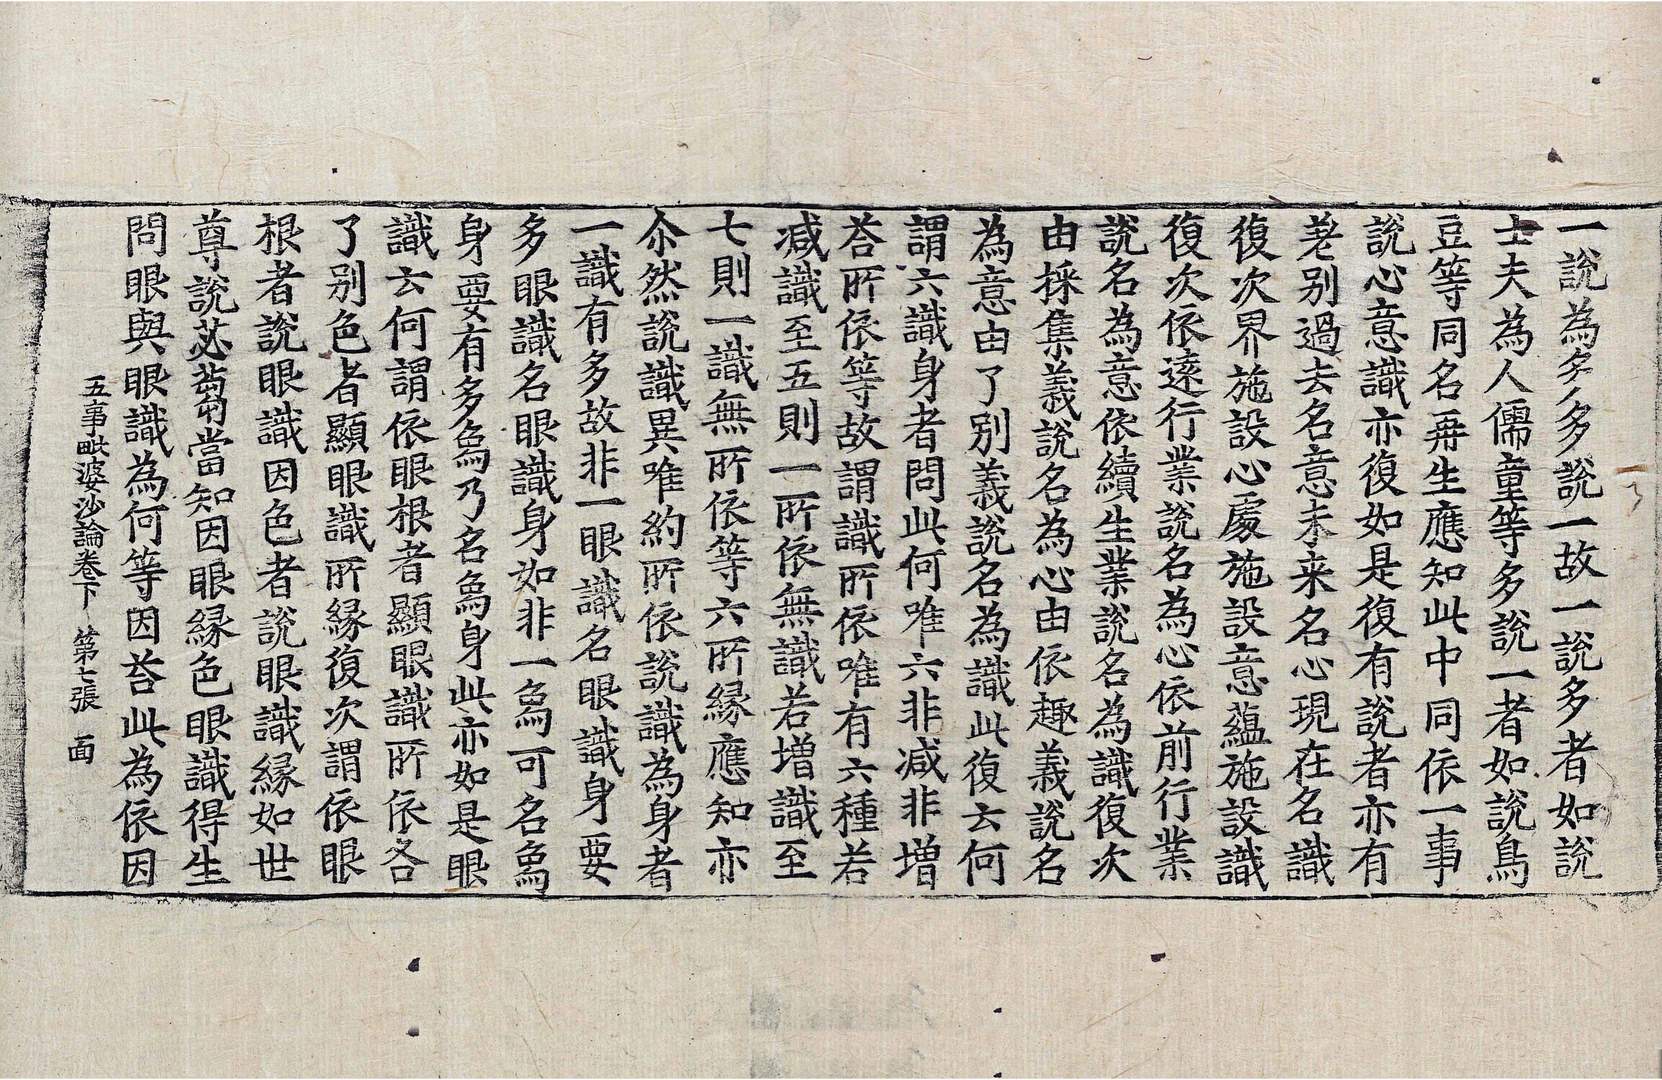 一說為多多說一故一說多者如說
士夫為人儒童等多說一者如說烏
豆等同名再生應知此中同依一事
說心意識亦復如是復有說者亦有
差別過去名意未来名心現在名識
復次界施設心處施設意蘊施設識
復次依遠行業說名為心依前行業
說名為意依續生業說名為識復次
由採集義說名為心由依趣義說名
為意由了別義說名為識此復云何
謂六識身者問此何唯六非減非增
荅所依等故謂識所依唯有六種若
减識至五則一所依無識若增識至
七則一識無所依等六所縁應知亦
尒然說識異唯約所依說識為身者
一識有多故非一眼識名眼識身要
多眼識名眼識身如非一鳥可名鳥
身要有多鳥乃名鳥身此亦如是眼
識云何謂依眼根者顯眼識所依各
了别色者顯眼識所縁復次謂依眼
根者說眼識因色者說眼識縁如世
尊說苾蒭當知因眼縁色眼識得生
問眼與眼識為何等因荅此為依因
五事毗婆沙論卷下 第七張 面